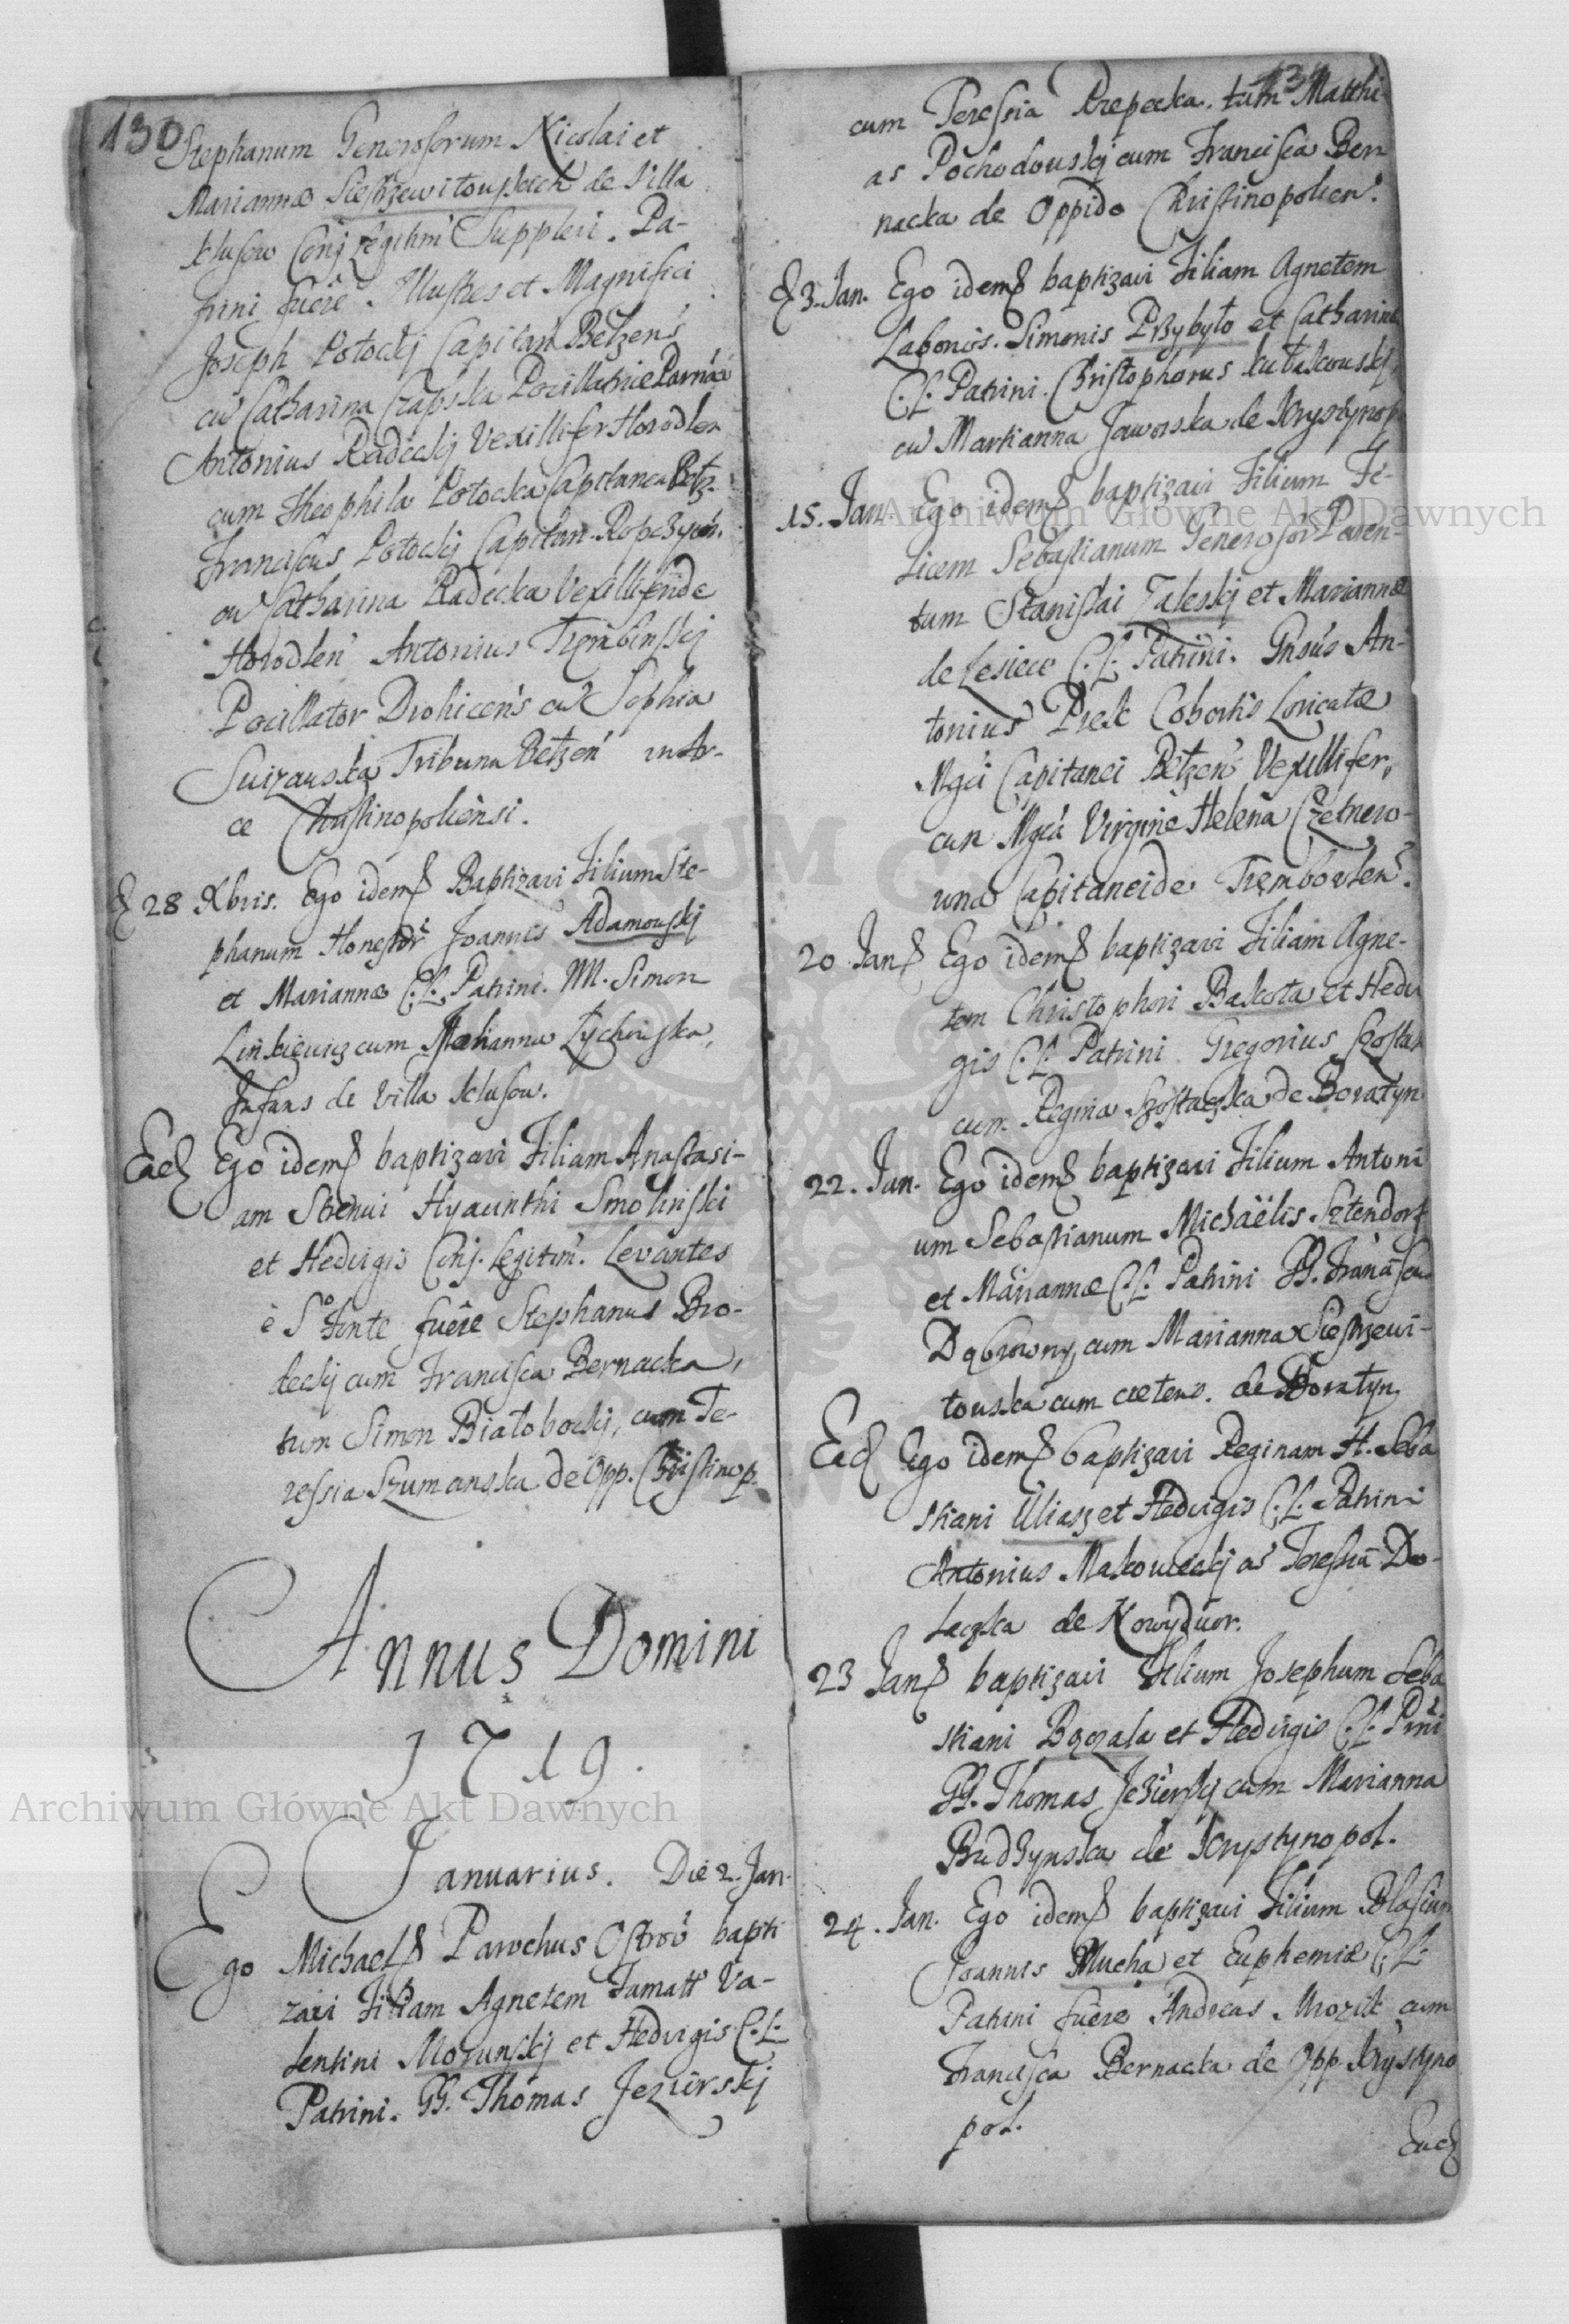 130
Stephanum Generosorum Nicolai et
Mariannæ Siestrzewitouskich de Villa
Klusow Conj Legitim Suppleri. Pa-
trini fuêre. Illustres et Magnifici
Joseph Potockj Capitan Bełzens
cu Catharina Czapska Pocillatrice Parna
Antonius Radeckj Vexillifer Horodlen
cum Theophila Potocka Capitanea Bełz.
Franciscus Potockj Capitan. Ropczycen.
cu Catharina Radecka Vexilliferide
Horodlen Antonius Trębinskj
Pocillator Drohicens cu Sophia
Suizauska Tribuna Bełzen in Ar-
ce Christinopoliensi.
28 Xbris. Ego idem Baptizavi Filium Ste-
phanum Honestor Joannis Adamouskj
et Mariannæ C.L. Patrini. M. Simon
Linkiewicz cum Marianna Zychouska,
Infans de Villa Klusow.
Ead Ego idem baptizavi Filiam Anastasi-
am Strenui Hyacinthi Smolinski
et Hedvigis Conj. Legitim. Levantes
è So Fonte fuêre Stephanus Bro-
deckj cum Francisca Bernacka,
tum Simon Białobockj, cum Te-
ressia Szumanska de Opp. Christinop.
Annus Domini
1719.
Januarius. Die 2. Jan.
Ego Michael Parochus Ostrov bapti
zavi Filiam Agnetem Famati Va-
lentini Morunskj et Hedvigis C.L.
Patrini. GG. Thomas Jezierskj
131
cum Teressia Krzepecka. tum Matthi
as Pochodouskj cum Francisca Ber
nacka de Oppido Christinopolien.
3. Jan. Ego idem baptizavi Filiam Agnetem
Laborios. Simonis Przybyło et Catharinæ
C.L. Patrini. Christophorus Kułakouskj
cu Marianna Jaworska de Krystynop
15. Jan. Ego idem baptizavi Filium Fe-
licem Sebastianum Generosor Paren-
tum Stanislai Zaleskj et Mariannæ
de Lesiece C.L. Patrini. Gnsus An-
tonius Cohortis Loricatæ
Mgci Capitanei Bełzen Vexillifer,
cum Mgca Virgine Helena Czetnero-
una Capitaneide Trembowlen.
20 Jan Ego idem baptizavi Filiam Agne-
tem Christophori Bakota et Hedv
gis C.L. Patrini Gregorius Szostak
cum Regina Szostaczka de Boratyn
22. Jan. Ego idem baptizavi Filium Antoni
um Sebastianum Michaëlis Sztendorf
et Mariannæ C.L. Patrini GG. Franciscus
Dąbrowny, cum Marianna Siestrzewi-
touska cum cæteris. de Boratyn.
Ead Ego idem baptizavi Reginam H. Seba
stiani Uliasz et Hedvigis C.L. Patrini
Antonius Makowieckj ac Teressia Do-
laczka de Nowydwor.
23 Jan baptizavi Filium Josephum Seba
stiani Bączala et Hedvigis C.L. Prni
GG. Thomas Jezierskj cum Marianna
Budzynska de Krystynopol.
24. Jan. Ego idem baptizavi Filium Blasium
Joannis Mucha et Euphemiæ C.L.
Patrini fuêre Andreas Mrozik cum
Francisca Bernacka de Opp. Krystyno
pol.
Ead
Archiwum Główne Akt Dawnych
Archiwum Główne Akt Dawnych